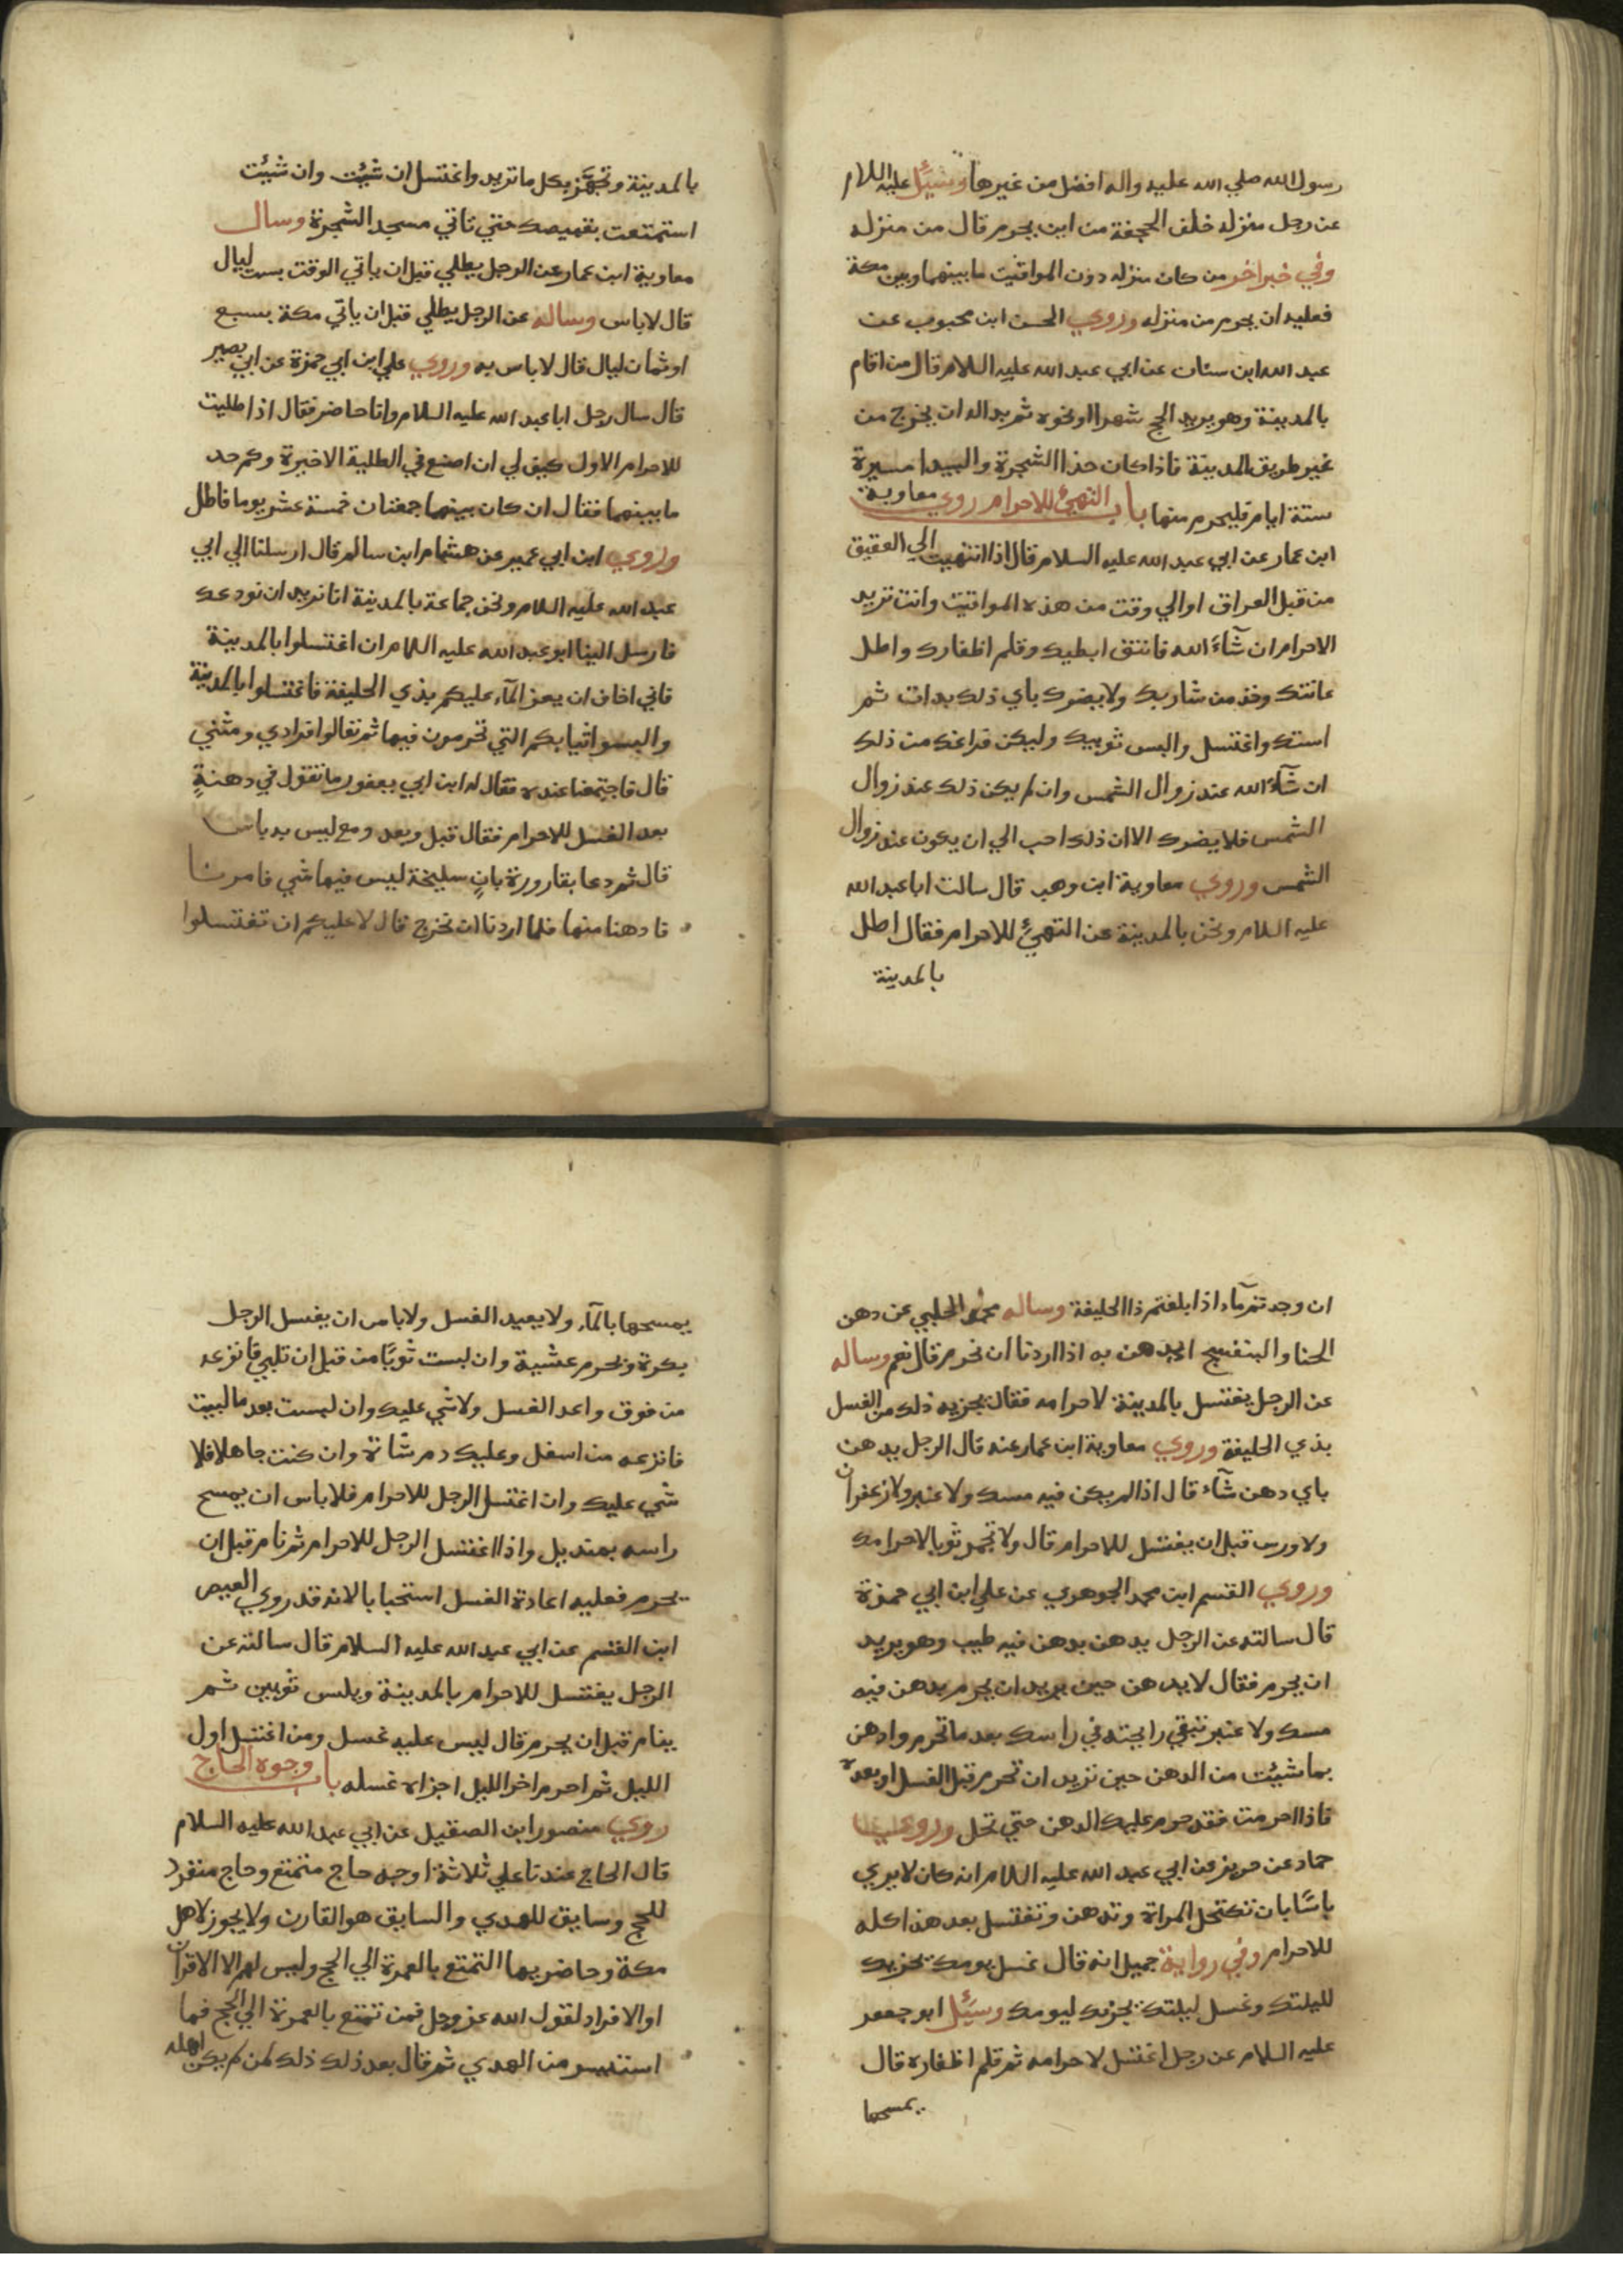 رسول الله صلي الله عليه واله افضل من غيرها وسئل عليه اللام
عن رجل منزله خلف الجحفة من اين يحرم قال من منزله
وفي خبر اخر من كان منزله دون المواقيت ما بينهما وبين مكة
فعليه ان يحرم من منزله وروي الحسن ابن محبوب عن
عبد الله ابن سنان عن ابي عبد الله عليه اللام قال من اقام
بالمدينة وهو يريد الحج شهرا او نحوه ثم بدا له ان يخرج من
غير طريق المدينة فاذا كان حذا الشجرة والبيدا مسيرة
ستة ايام فليحرم منها باب التهيئ للاحرام روي معاوية
ابن عمار عن ابي عبد الله عليه السلام قال اذا انتهيت الي العقيق
من قبل العراق او الي وقت من هذه المواقيت وانت تريد
الاحرام ان شآء الله فانتف ابطيك وقلم اظفارك واطل
عانتك وخذ من شاربك ولا يضرك باي ذلك بدات ثم
استك واغتسل والبس ثوبيك وليكن فراغك من ذلك
ان شآء الله عند زوال الشمس وان لم يكن ذلك عند زوال
الشمس فلا يضرك الا ان ذلك احب الي ان يكون عند زوال
الشمس وروي معاوية ابن وهب قال سالت ابا عبد الله
عليه اللام ونحن بالمدينة عن التهيئ للاحرام فقال اطل
بالمدينة
بالمدينة وتجهز بكل ما تريد واغتسل ان شئت وان شئت
استمتعت بقميصك حتي تاتي مسجد الشجرة وسال
معاوية ابن عمار عن الرجل يطلي قبل ان ياتي الوقت بست ليال
قال لا باس وساله عن الرجل يطلي قبل ان ياتي مكة بسبع
او ثمان ليال قال لا باس به وروي علي ابن ابي حمزة عن ابي بصير
قال سال رجل ابا عبد الله عليه السلام وانا حاضر فقال اذا طليت
للاحرام الاول كيف لي ان اصنع في الطلية الاخيرة وكم حد
ما بينهما فقال ان كان بينهما جمعتان خمسة عشر يوما فاطل
وروي ابن ابي عمير عن هشام ابن سالم قال ارسلنا الي ابي
عبد الله عليه اللام ونحن جماعة بالمدينة انا نريد ان نودعك
فارسل الينا ابو عبد الله عليه اللام ان اغتسلوا بالمدينة
فاني اخاف ان يعز المآء عليكم بذي الحليفة فاغتسلوا بالمدينة
والبسوا ثيابكم التي تحرمون فيها ثم تعالوا فرادي ومثني
قال فاجتمعنا عنده فقال له ابن ابي يعفور ما تقول في دهنةٍ
بعد الغسل للاحرام فقال قبل وبعد ومع ليس به باس
قال ثم دعا بقارورة بانٍ سليخة ليس فيها شي فامرنا
فادهنا منها فلما اردنا ان نخرج قال لا عليكم ان تغتسلوا
ان وجدتم مآء اذا بلغتم ذا الحليفة وساله محمد الحلبي عن دهن
الحنا والبنفسج ايدهن به اذا اردنا ان نحرم قال نعم وساله
عن الرجل يغتسل بالمدينة لاحرامه فقال يجزيه ذلك من الغسل
بذي الحليفة وروي معاوية ابن عمار عنه قال الرجل يدهن
باي دهن شآء قال اذا لم يكن فيه مسك ولا عنبر ولا زعفران
ولا ورس قبل ان يغتسل للاحرام قال ولا تجمر ثوبا لاحرامك
وروي القسم ابن محمد الجوهري عن علي ابن ابي حمزة
قال سالته عن الرجل يدهن بدهن فيه طيب وهو يريد
ان يحرم فقال لا يدهن حين يريد ان يحرم بدهن فيه
مسك ولا عنبر تبقي رايحته في راسك بعد ما تحرم وادهن
بما شئت من الدهن حين تريد ان تحرم قبل الغسل او بعده
فاذا احرمت فقد حرم عليك الدهن حتي تحل وروي
حماد عن حريز عن ابي عبد الله عليه اللام انه كان لا يري
باسًا بان تكتحل المراة وتدهن وتغتسل بعد هذا كله
للاحرام وفي رواية جميل انه قال غسل يومك يجزيك
لليلتك وغسل ليلتك يجزيك ليومك وسئل ابو جعفر
عليه السلام عن رجل اغتسل لاحرامه ثم قلم اظفاره قال
يمسحها
يمسحها بالمآء ولا يعيد الغسل ولا باس ان يغسل الرجل
بكرة ويحرم عشية وان لبست ثوبًا من قبل ان تلبي فانزعه
من فوق واعد الغسل ولا شي عليك وان لبست بعد ما لبيت
فانزعه من اسفل وعليك دم شاة وان كنت جاهلا فلا
شي عليك وان اغتسل الرجل للاحرام فلا باس ان يمسح
راسه بمنديل واذا اغتسل الرجل للاحرام ثم نام قبل ان
يحرم فعليه اعادة الغسل استحبابا لانه قد روي العيص
ابن القسم عن ابي عبد الله عليه السلام قال سالته عن
الرجل يغتسل للاحرام بالمدينة ويلبس ثوبين ثم
ينام قبل ان يحرم قال ليس عليه غسل ومن اغتسل اول
الليل ثم احرم اخر الليل اجزاه غسله باب وجوه الحاج
روي منصور ابن الصقيل عن ابي عبد الله عليه السلام
قال الحاج عندنا علي ثلاثة اوجه حاج متمتع وحاج منفرد
للحج وسايق للهدي والسايق هو القارن ولا يجوز لاهل
مكة وحاضريها التمتع بالعمرة الي الحج وليس لهم الا الاقران
او الافراد لقول الله عز وجل فمن تمتع بالعمرة الي الحج فما
استيسر من الهدي ثم قال بعد ذلك ذلك لمن لم يكن اهله